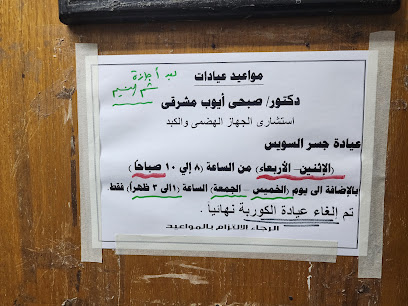 بعد أجازة
شم النسيم
مواعيد عيادات
دكتور/ صبحى أيوب مشرقى
استشارى الجهاز الهضمى والكبد
عيادة جسر السويس
(الإثنين - الأربعاء) من الساعة (٨ إلي ١٠ صباحاً)
بالإضافة الى يوم (الخميس - الجمعة) الساعة (١الى ٣ ظهراً) فقط
تم إلغاء عيادة الكوربة نهائياً .
الرجاء الالتزام بالمواعيد